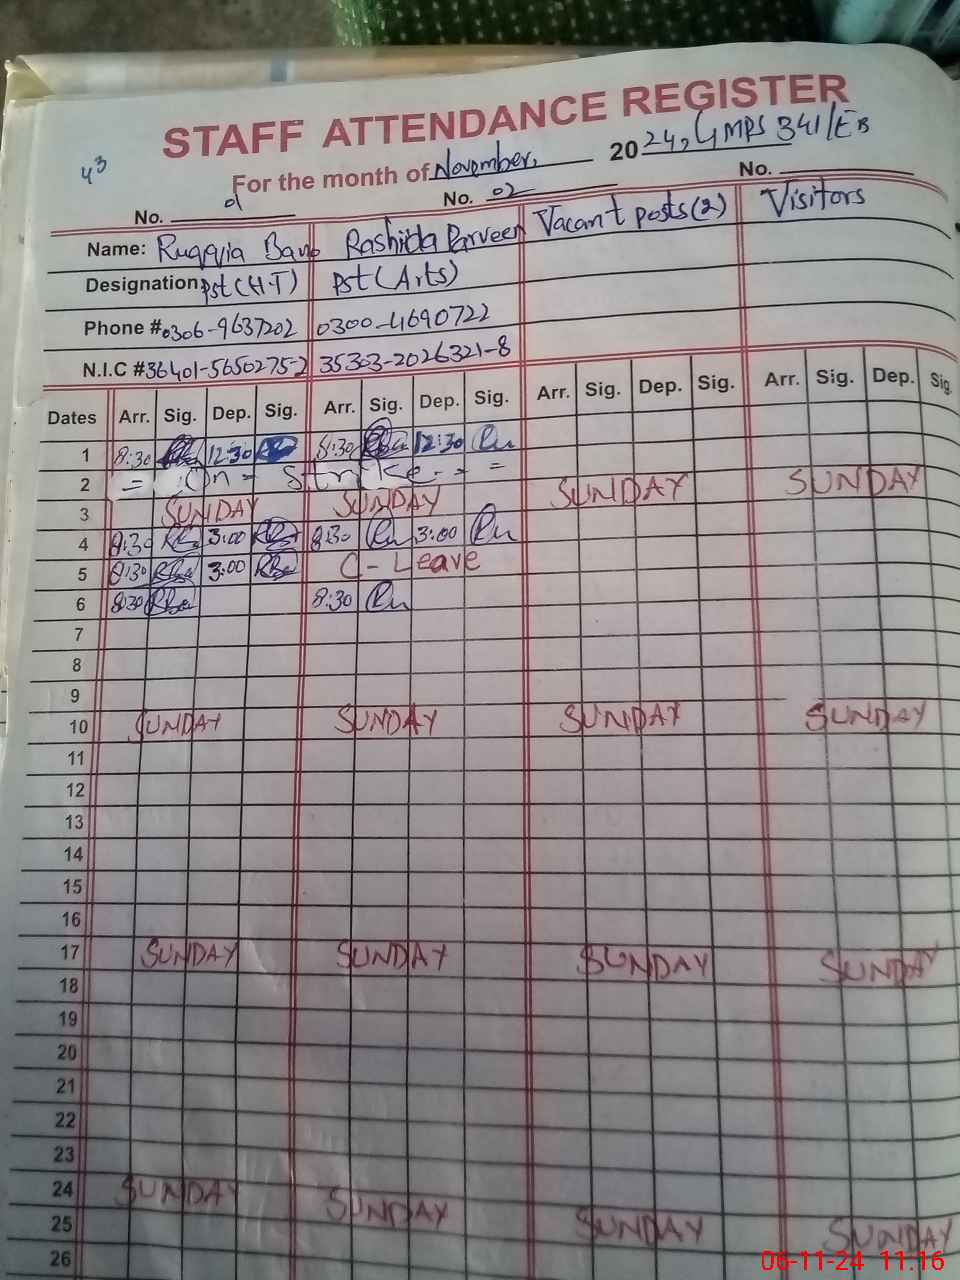 STAFF ATTENDANCE REGISTER
43
For the month of November, 2024, GMPS 341/EB
No. 01 No. 02 No.
Name: Ruqqia Bano Rashida Parveen Vacant posts (2) Visitors
Designation Pst (H.T) Pst (Arts)
Phone # 0306-9637202 0300-4690722
N.I.C # 36401-5650275-2 35303-2026321-8
Dates Arr. Sig. Dep. Sig. Arr. Sig. Dep. Sig. Arr. Sig. Dep. Sig. Arr. Sig. Dep. Sig.
1 8:30 12:30 8:30 12:30
2 = On = Strike - = =
3 SUNDAY SUNDAY SUNDAY SUNDAY
4 8:30 3:00 8:30 3:00
5 8:30 3:00 C - Leave
6 8:30 8:30
7
8
9
10 SUNDAY SUNDAY SUNDAY SUNDAY
11
12
13
14
15
16
17 SUNDAY SUNDAY SUNDAY SUNDAY
18
19
20
21
22
23
24 SUNDAY SUNDAY SUNDAY SUNDAY
25
26
06-11-24 11:16